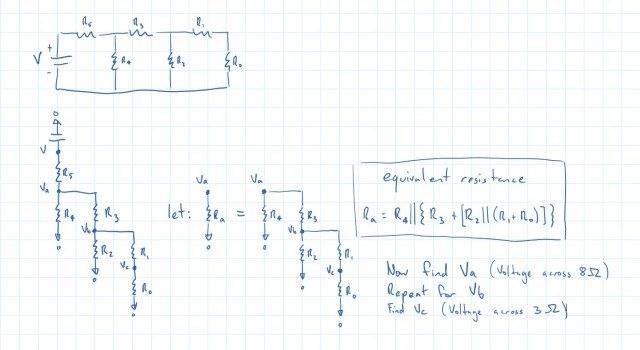 R5 R3 R1
V + - R4 R2 R0
V
R5
Va
R4 R3
Vb
R2 R1
Vc
R0
let: Va Ra = Va R4 R3
Vb
R2 R1
Vc
R0
equivalent resistance
Ra = R4||{R3+[R2||(R1+R0)]}
Now find Va (Voltage across 8Ω)
Repeat for Vb
Find Vc (Voltage across 3Ω)